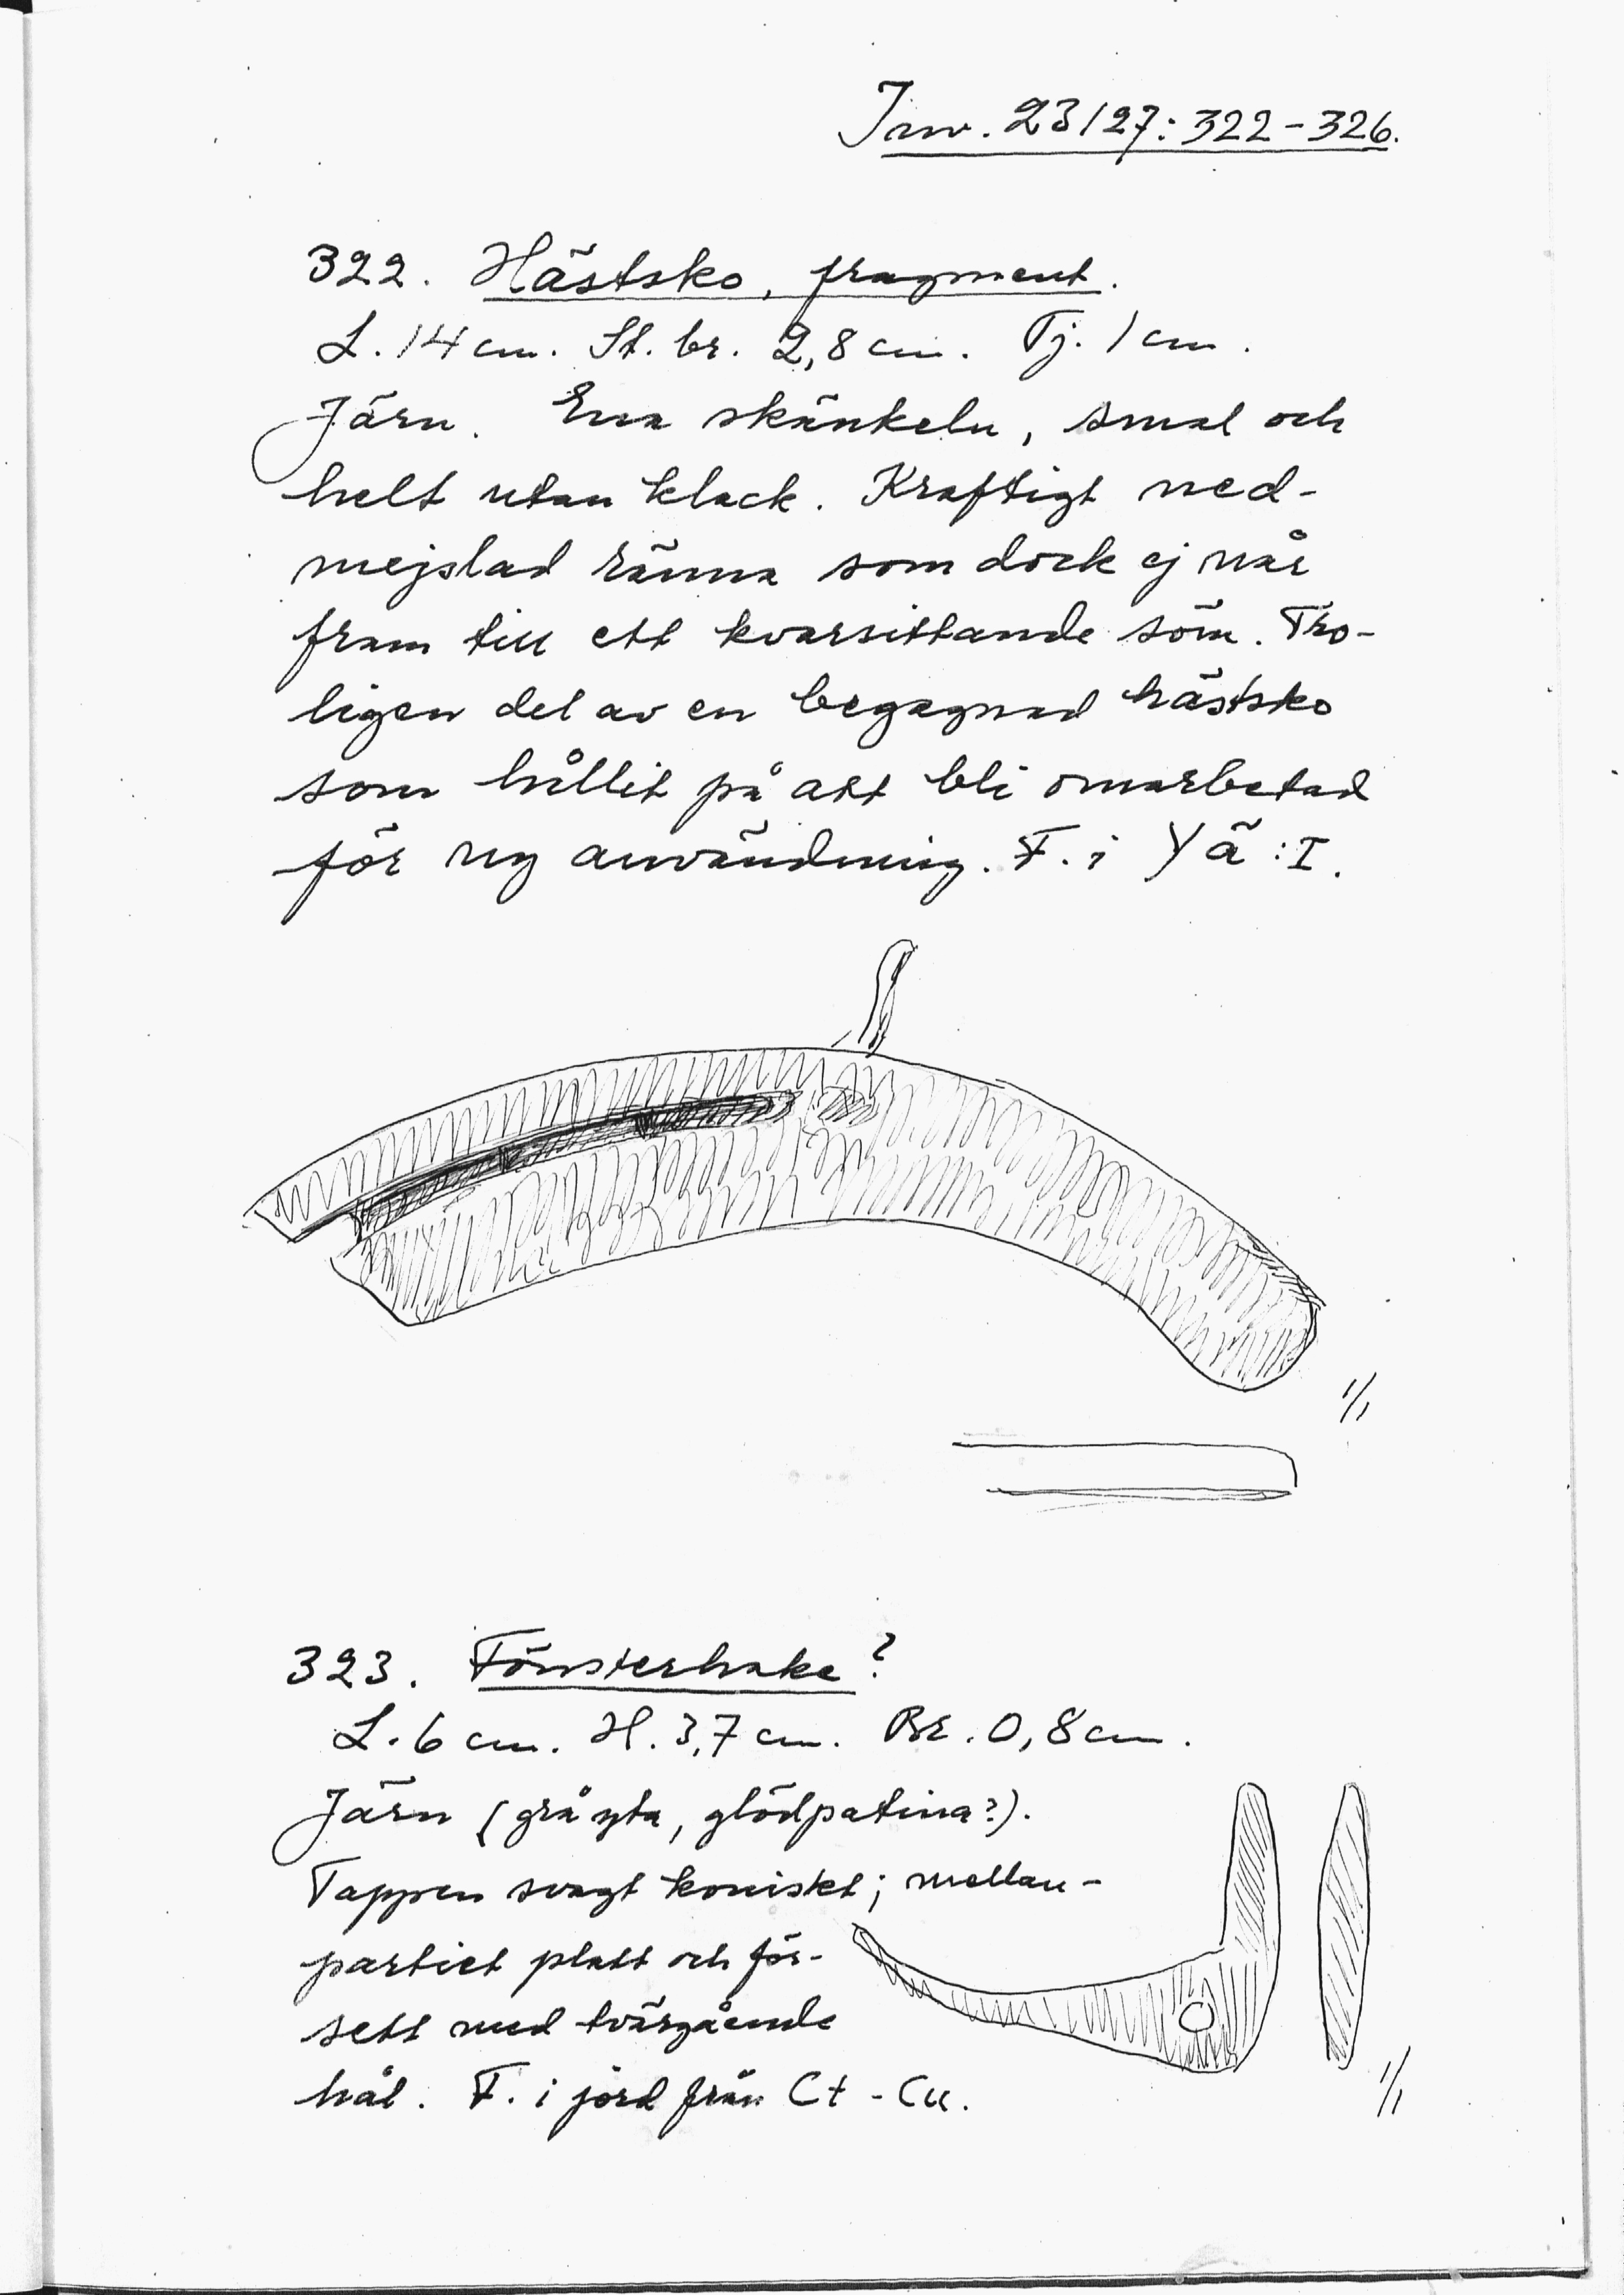 Inv. 23127:322-326.
322. Hästsko, fragment.
L. 14 cm. St. br. 2,8 cm. Tj. 1 cm.
Järn. Ena skänkeln, smal och
helt utan klack. Kraftigt ned-
mejslad ränna som dock ej når
fram till ett kvarsittande söm. Tro-
ligen del av en begagnad hästsko
som hållit på att bli omarbetad
för ny användning. F. i Yä:I.
1/1
323. Fönsterhake?
L. 6 cm. H. 3,7 cm. Br. 0,8 cm.
Järn (grå yta, glödpatina?).
Tappen svagt koniskt; mellan-
partiet platt och för-
sett med tvärgående
hål. F. i jord från Ct-Cu.
1/1